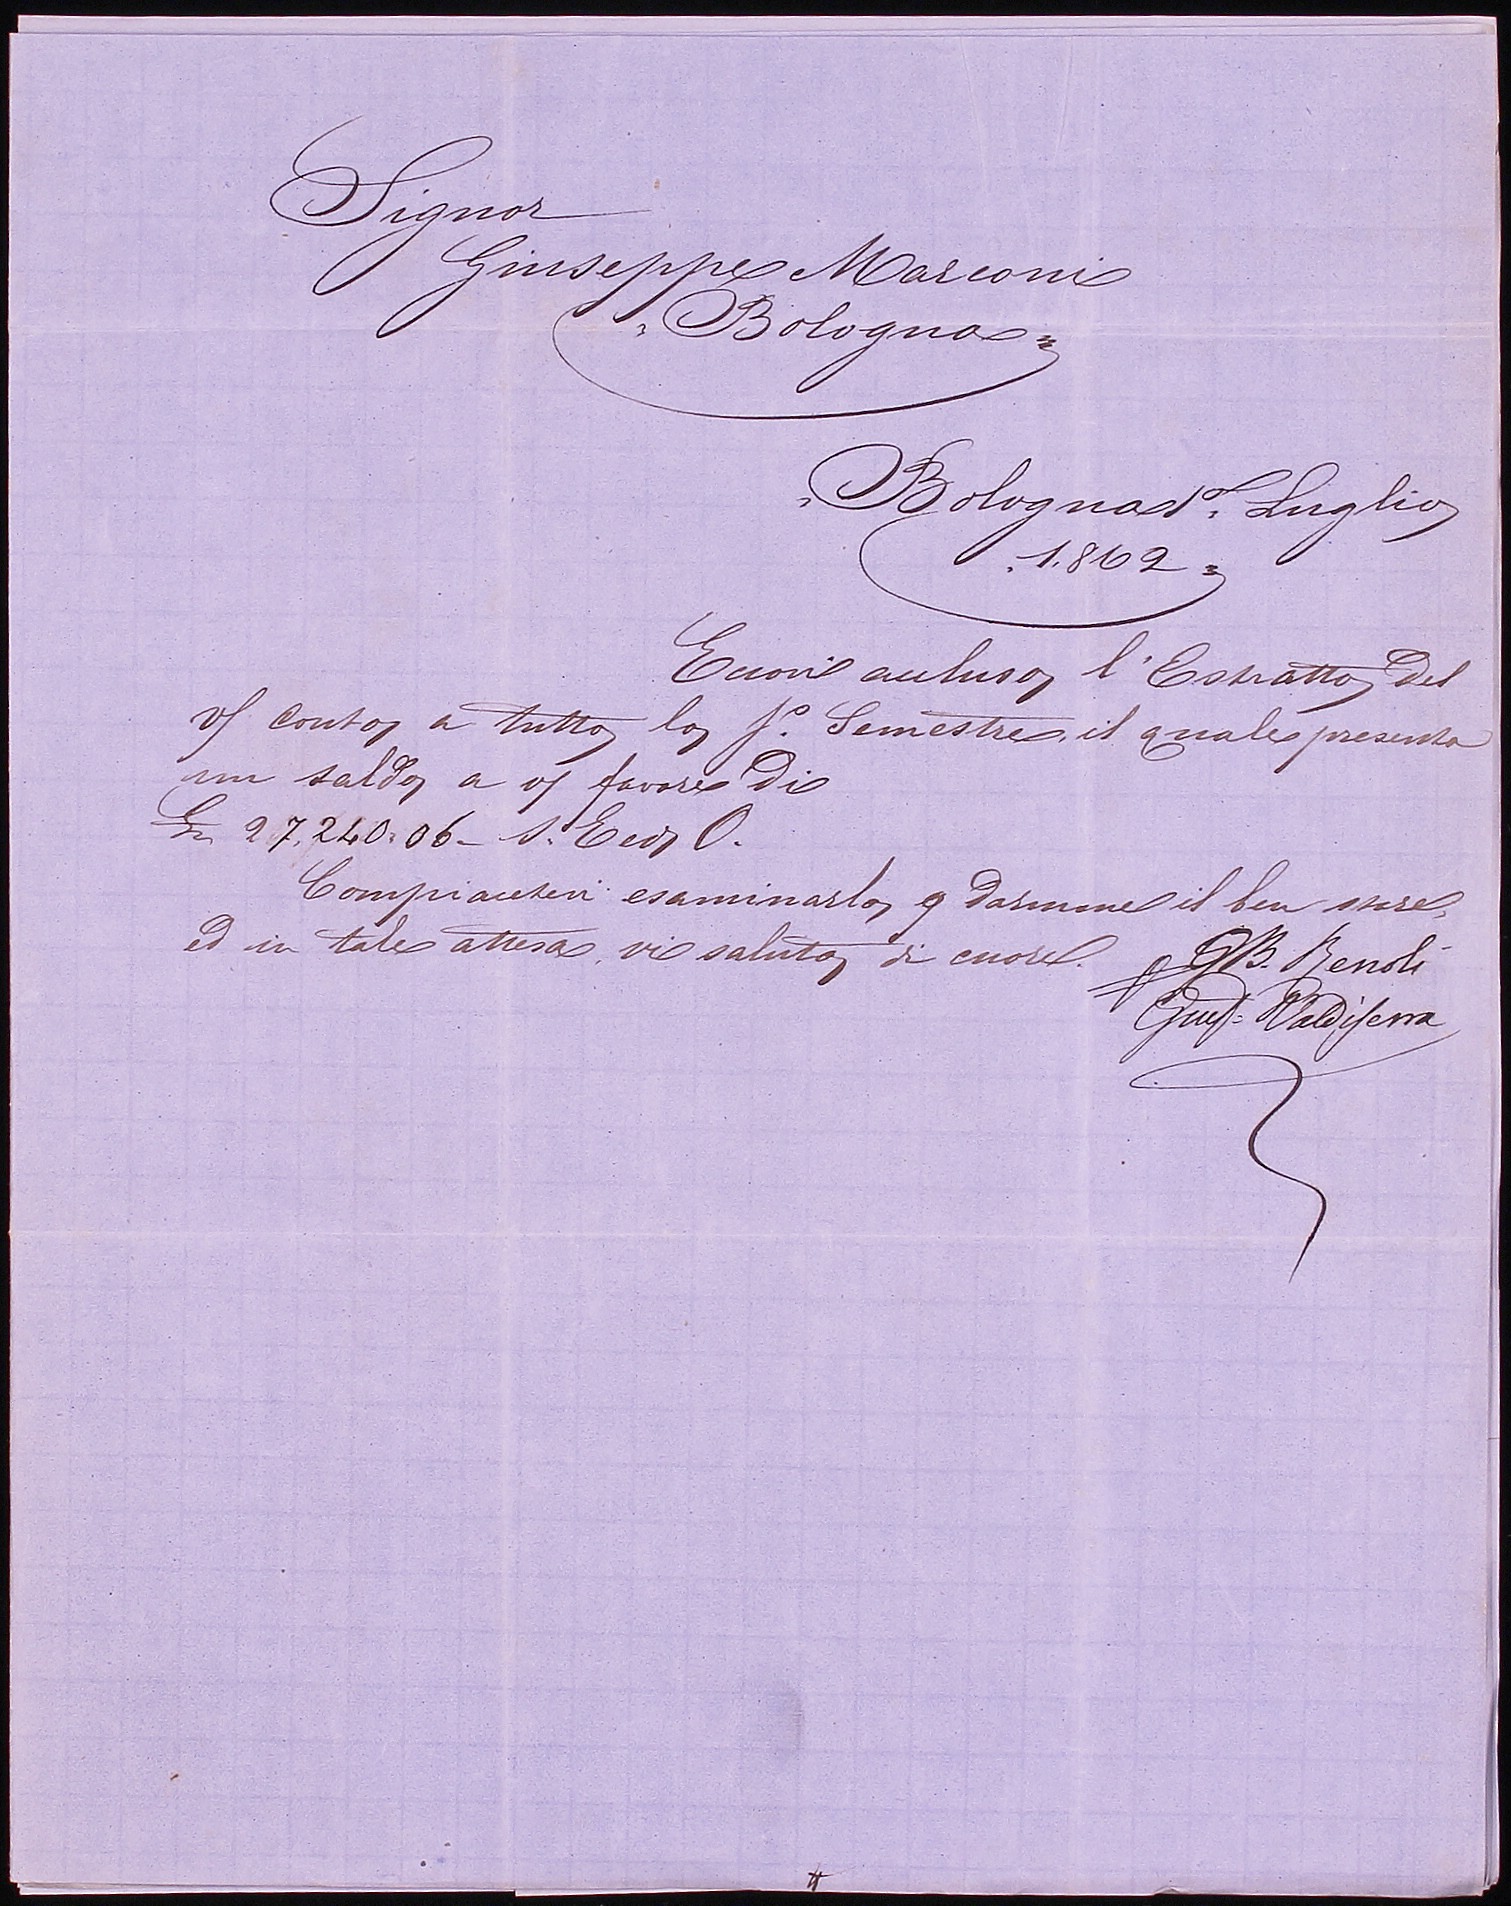 Signor
Giuseppe Marconi
Bologna
Bologna 1º Luglio
1862
Eccovi accluso l'Estratto del
vs conto a tutto lo p.º Semestre, il quale presenta
un saldo a vs favore di
Ln 27,240.06 - S. E ed O.
Compiacetevi esaminarlo, e darmene il ben stare,
ed in tale attesa, vi saluto di cuore.
p GB. Renoli
Gius. Valdiserra